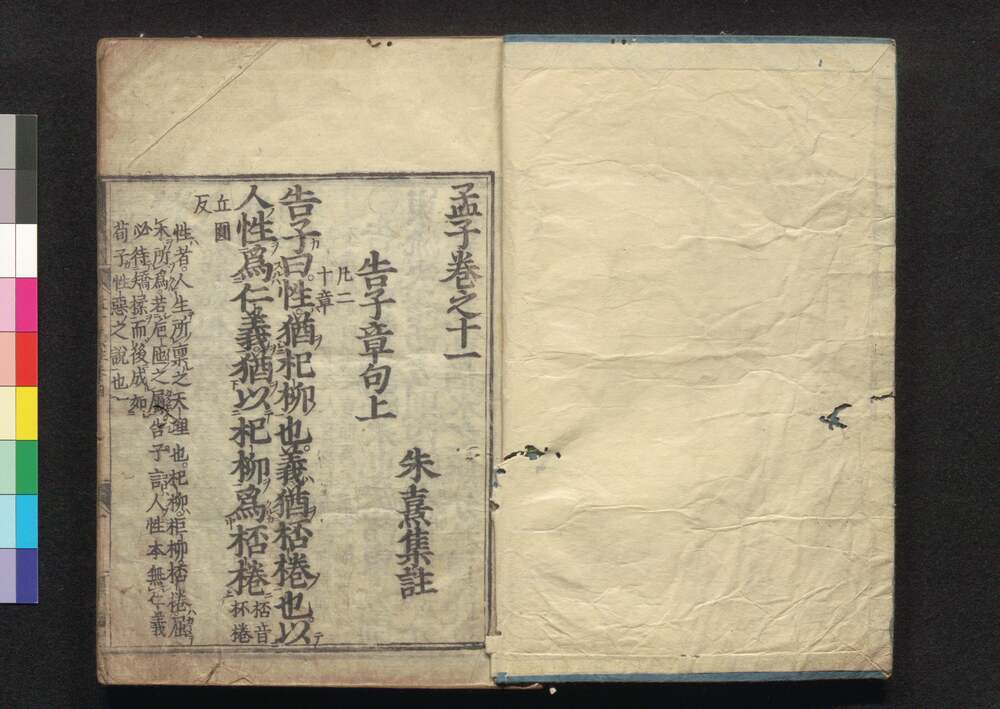 孟子卷之十一
朱熹集註
告子章句上
凡二
十章
告子曰。性猶杞柳也。義猶桮棬也。以
人性爲仁義。猶以杞柳爲桮棬
桮音
杯棬
丘圓
反
性者。人生所禀之天理也。杞柳。柜柳。桮棬。屈
木所爲。若巵匜之屬。告子言人性本無仁義。
必待矯揉而後成。如
荀子。性惡之說也。